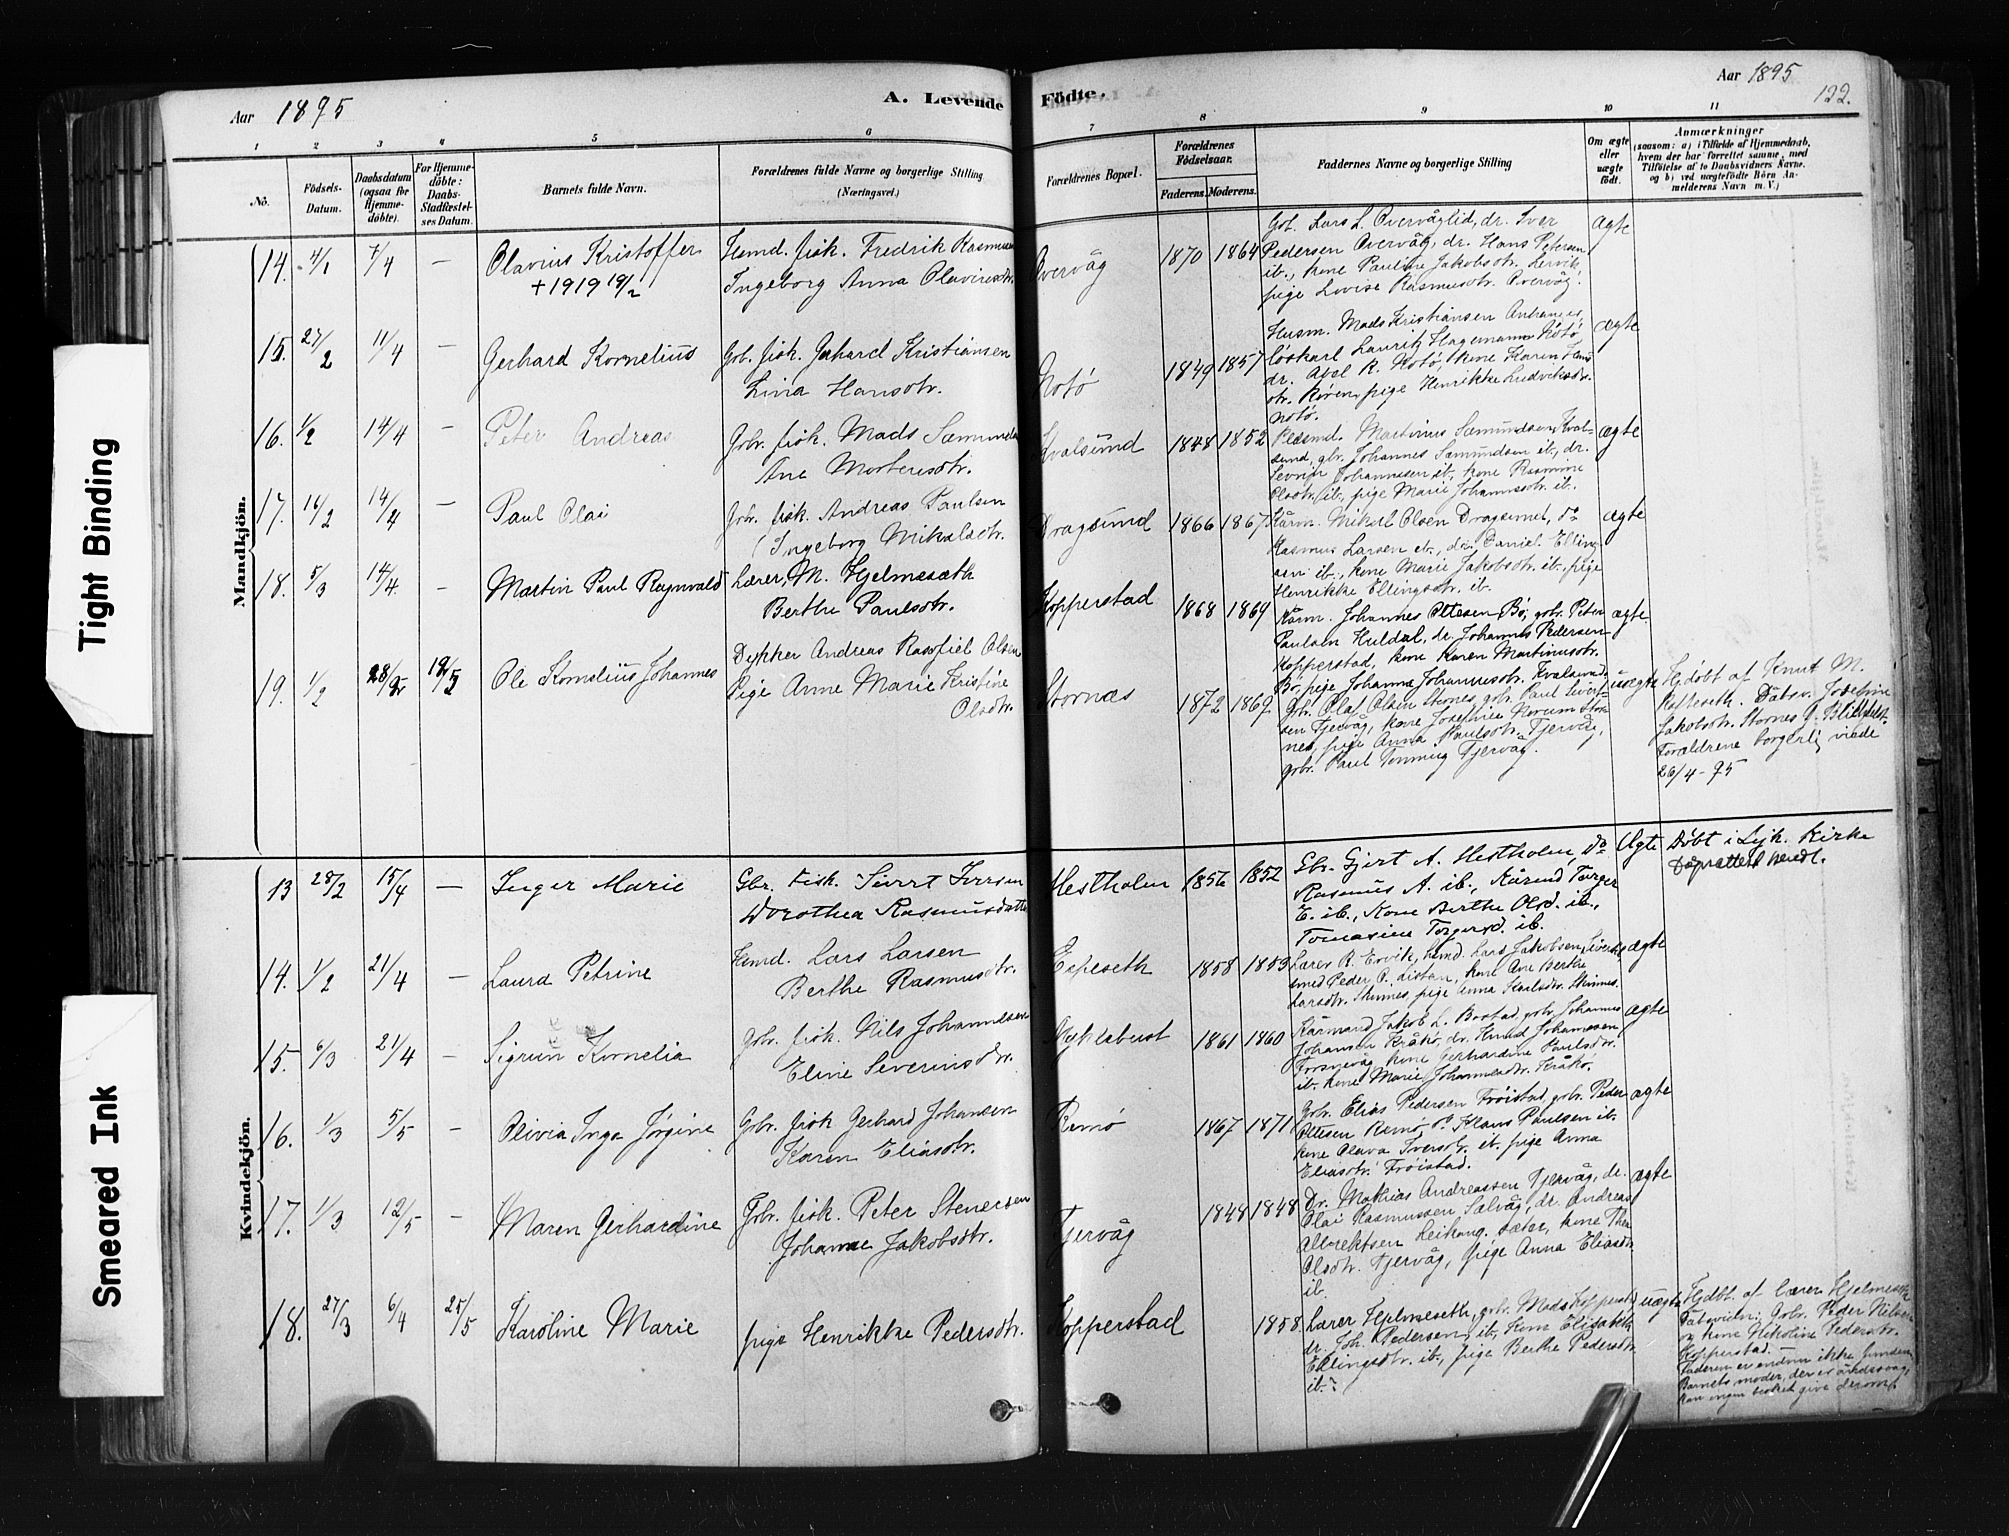 Aar 1895
A. Levende Födte.
Aar 1895
122.
1 2 3 4 5 6 7 8 9 10 11
No.
Födsels-Datum.
Daabsdatum (ogsaa for Hjemmedöbte).
For Hjemmedöbte: Daabs-Stadfæstelses Datum.
Barnets fulde Navn.
Forældrenes fulde Navne og borgerlige Stilling (Næringsvei.)
Forældrenes Bopæl.
Forældrenes Födselsaar.
Faderens. Moderens.
Faddernes Navne og borgerlige Stilling
Om ægte eller uægte födt.
Anmærkninger
(saasom: a) i Tilfælde af Hjemmedaab,
hvem der har forrettet samme, med
Tilföielse af to Daabsvidners Navne.
og b) ved uægtefödte Börn Anmelderens Navn m. V.)
Mandkjön.
14. 4/1 7/4 — Olavius Kristoffer
+ 1919 19/2
Hsmd. fisk. Fredrik Rasmussen
Ingeborg Anna Olavinesdtr.
Overvåg 1870 1864
Gbr. Lars L. Overvåglid, dr. Iver
Pedersen Overvåg, dr. Hans Petersen
ib., kone Pauline Jakobsdtr. Lervik,
pige Lovise Rasmusdtr. Overvåg.
ægte
15. 27/2 11/4 — Gerhard Kornelius
Gbr. fisk. Gerhard Kristiansen
Livia Hansdtr.
Notö 1849 1857
Husm. Mads Kristiansen
löskarl Laurits Hagemann Notö,
dr. Abel R. Notö, kone Karen Hans
dtr. pige Henrikke Ludviksdtr.
Notö.
ægte
16. 1/2 14/4 — Peter Andreas
Gbr. fisk. Mads Samundsen
Ane Mortensdtr.
Kvalsund 1848 1852
Martinus Samundsen Kval-
sund, gbr. Johannes Samundsen ib., dr.
Johannessen ib., kone Rasmine
Olsdtr. ib., pige Marie Johannesdtr. ib.
ægte
17. 16/2 14/4 — Paul Olai
Gbr. fisk. Andreas Paulsen
Ingeborg Mikalsdtr.
Dragsund 1866 1867
Kårm. Mikal Olsen Dragsund, do
Rasmus Larsen ib., dr. Daniel Elling-
sen ib., kone Marie Jakobsdtr. ib., pige
Henrikke Ellingsdtr. ib.
ægte
18. 5/3 14/4 — Martin Paul Ragnvald
Lærer, M. Hjelmeseth
Berthe Paulsdtr.
Kopperstad 1868 1869
Kårm. Johannes Ottesen Bö, gbr. Peter
Paulsen Huldal, dr. Johannes Pedersen
Kopperstad, kone Karen Martinusdtr.
Bö, pige Johanne Johannesdtr. Kvalsund.
ægte
19. 1/2 28/2 12/5 Ole Kornelius Johannes
Dykker Andreas Olsen
Pige Anne Marie Kristine
Olsdtr.
Stornæs 1872 1869
Gbr. Olaf Olsen Stornes, gbr. Paul Sivert-
sen Tjervåg, kone Josefine Norum Stor-
nes, pige Anna Paulsdtr. Tjervåg,
gbr. Paul Tjervåg.
uægte
Hjdöbt af Knut M.
Dåbsv. Josefine
Jakobsdtr. Stornes
Forældrene borgerlig viede
26/4-95
Kvindekjön.
13 28/2 15/4 — Inger Marie
Gbr. Fisk. Sivert Iversen
Dorothea Rasmusdatter
Hestholm 1856 1852
Gbr. Gjert A. Hestholm, Do
Rasmus A. ib., Kårmd Torger
E. ib., Kone Berthe Olsd. ib.,
Tomasine Torgersd. ib.
Ægte
Döbt i Kirke
14. 1/2 21/4 — Laura Petrine
Hsmd. Lars Larsen
Berthe Rasmusdtr.
Espeseth 1858 1853
Lærer R. Ervik, hsmd. Lars Jakobsen,
smed Peder P. Listau, kone Ane Berthe
Larsdtr. pige Anna Karlsdtr.
ægte
15. 6/3 21/4 — Sigrun Kornelia
Gbr. fisk. Nils Johannesen
Eline Severinsdtr.
Myklebust 1861 1860
Kårmand Jakob L. Bostad, gbr. Johannes
Johansen Kråkö, dr. Knud Johannesen
kone Gerhardine Paulsdtr.
ib. kone Marie Johannesdtr. Kråkö.
ægte
16. 1/3 5/5 — Olivia Inga Jörgine
Gbr. fisk Gerhard Johansen
Karen Eliasdtr.
Remö 1867 1871
Gbr. Elias Pedersen Fröistad, gbr. Peder
Ottesen Remö, do Klaus Paulsen ib.
kone Olava Iversdtr. ib. pige Anna
Eliasdtr. Fröistad.
ægte
17. 1/3 12/5 — Maren Gerhardine
Gbr. fisk. Peter Stenersen
Johanne Jakobsdtr.
Tjervåg 1848 1848
Dr. Mathias Andreassen Tjervåg, dr.
Olai Rasmussen Salvåg, dr. Andreas
Albrektsen Leikang. sæter, kone Thea
Olsdtr. Tjervåg, pige Anna Eliasdtr.
ib.
ægte
18. 27/3 6/4 25/5 Karoline Marie
pige Henrikke Pedersdtr.
Kopperstad 1858.
Lærer Hjelmeseth, gbr. Mads Kopperstad
dr. Joh. Pedersen ib., kone Elisabeth
Ellingsdtr. ib., pige Berthe Pedersdtr.
ib.
uægte
Hjdbt. af lærer Hjelmeseth
Dåbsvidn: Gbr. Peder Nilsen
og kone Nikoline Pedersdtr.
Kopperstad. —
Faderen er endnu ikke funden
Barnets moder, der er åndssvag,
kan ingen besked give derom.
Tight Binding
Smeared Ink